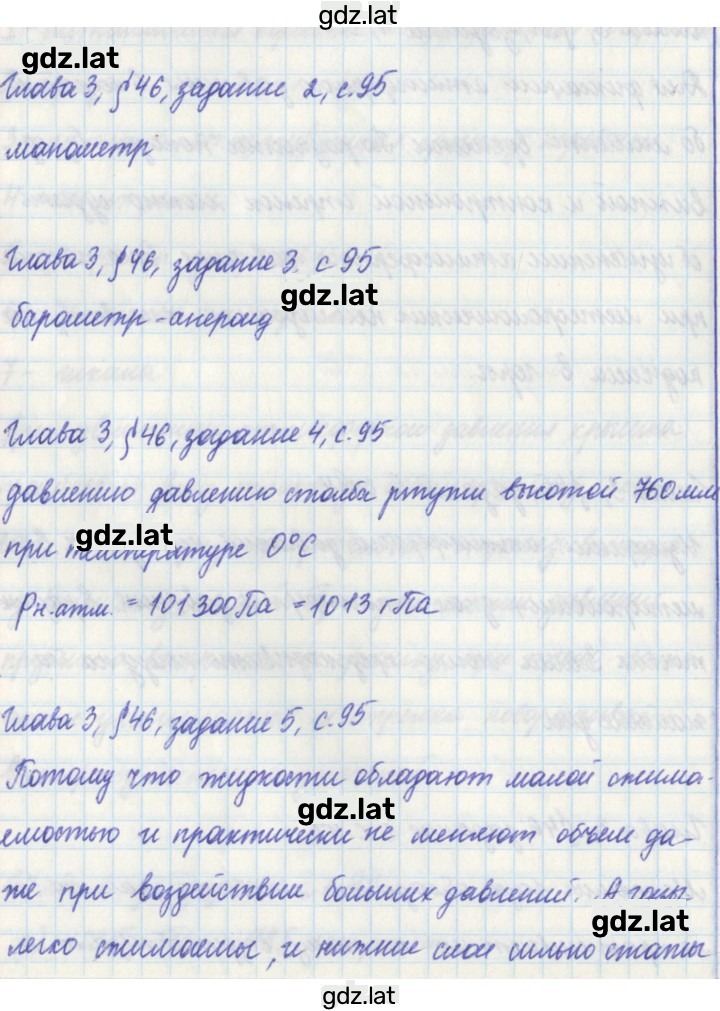 gdz.lat
gdz.lat
Глава 3, §46, задание 2, с.95
манометр
Глава 3, §46, задание 3. с 95
gdz.lat
барометр-анероид
Глава 3, §46, задание 4, с.95
давлению давлению столба ртути высотой 760мм
gdz.lat
при температуре 0°С
Рн.атм. = 101300Па = 1013 гПа
Глава 3, §46, задание 5, с.95
Потому что жидкости обладают малой сжима-
gdz.lat
емостью и практически не меняют объем да-
же при воздействии больших давлений. А газы
gdz.lat
легко сжимаемы, и нижние слои сильно сжаты
gdz.lat